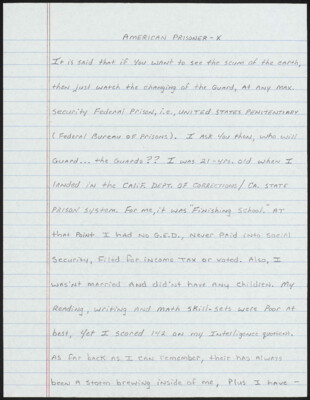 AMERICAN PRISONER-X
It is said that if you want to see the scum of the earth,
then just watch the changing of the Guard, at any max
security Federal Prison, i.e., UNITED STATES PENITENTIARY
(Federal Bureau of Prisons). I ask you then, who will
Guard... the Guards?? I was 21-yrs. old when I
landed in the CALIF. DEPT. OF CORRECTIONS/ CA. STATE
PRISON system. For me, it was "Finishing School." AT
that point I had no G.E.D., never paid into social
security, filed for income TAX or voted. Also, I
was'nt married and did'nt have any children. My
Reading, writing and math skill-sets were poor at
best, yet I scored 142 on my Intelligence quotient.
As far back as I can remember, their has always
been a storm brewing inside of me, Plus I have -